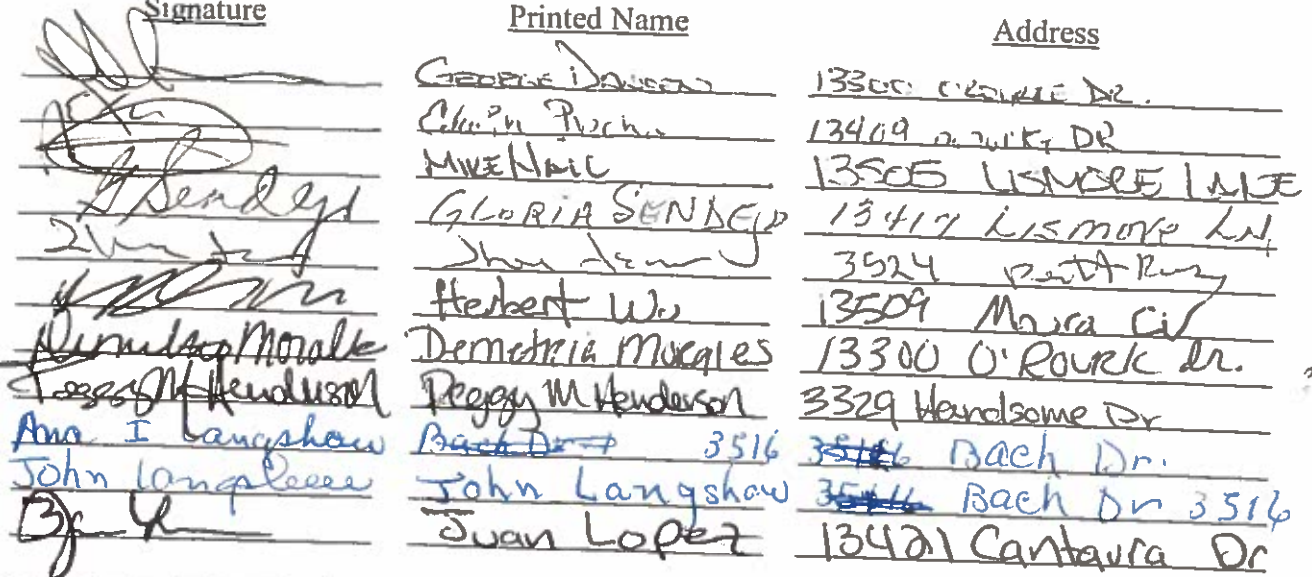 Signature Printed Name Address
GEORGE 13300 DR.
13409 DR
MIKE NAIL 13505 LISMORE LANE
G Sendejo GLORIA SENDEJO 13417 Lismore LN.
3524
Herbert Wu 13509 Maura Cir
Morales Demetria Morales 13300 O'ROURK dr.
Peggy M Henderson Peggy M Henderson 3329 Handsome Dr
Ana I Langshaw Bach Dr 3516 Bach Dr.
John Langshaw John Langshaw Bach Dr 3516
Juan Lopez 13421 Cantaura Dr